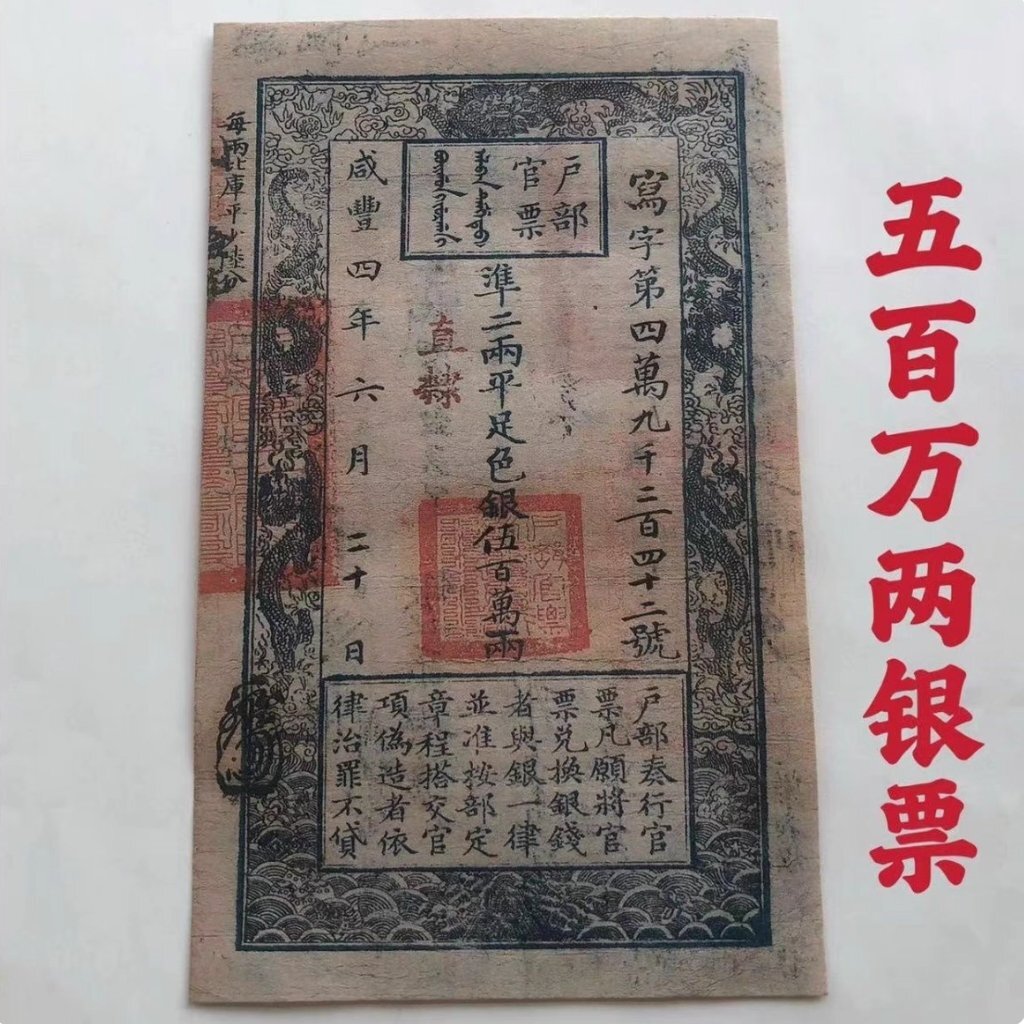 寫字第四萬九千二百四十二號
戶部
官票
準二兩平足色銀伍百萬兩
直隸
咸豐四年六月二十日
每兩比庫平少陸分
戶部奏行官
票凡願將官
票兌換銀錢
者與銀一律
並准按部定
章程搭交官
項偽造者依
律治罪不貸
五百万两银票